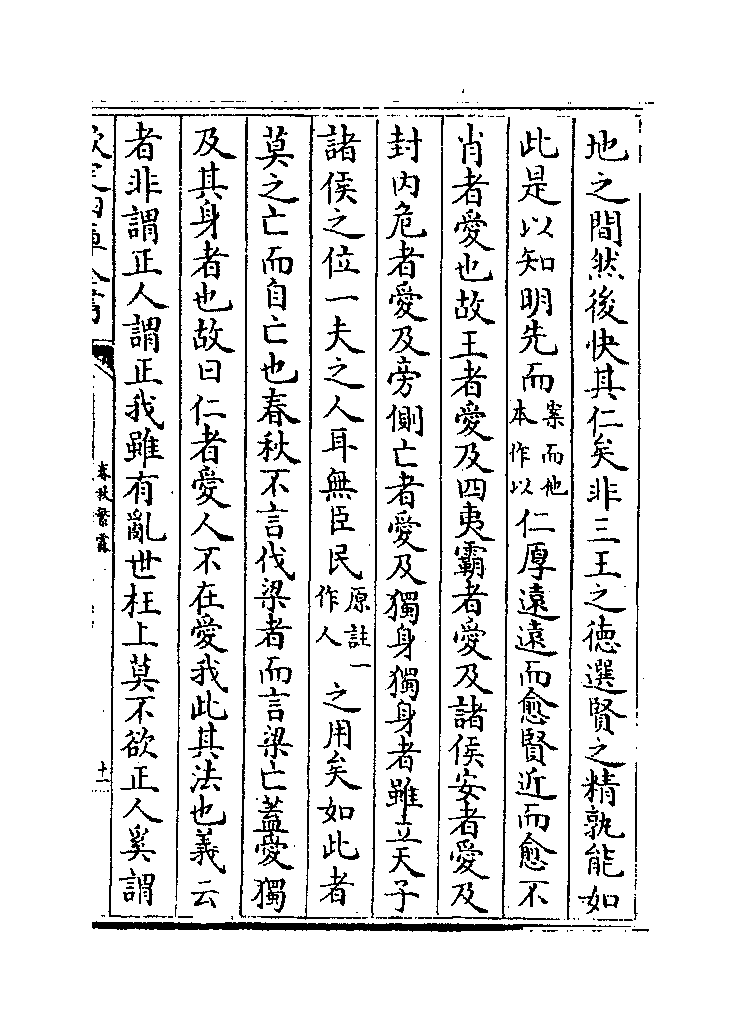 地之間然後快其仁矣非三王之徳選賢之精孰能如
此是以知明先而案而他本作以仁厚遠遠而愈賢近而愈不
肖者愛也故王者愛及四夷霸者愛及諸侯安者愛及
封内危者愛及旁側亡者愛及獨身獨身者雖立天子
諸侯之位一夫之人耳無臣民原註一作人之用矣如此者
莫之亡而自亡也春秋不言伐梁者而言梁亡蓋愛獨
及其身者也故曰仁者愛人不在愛我此其法也義云
者非謂正人謂正我雖有亂世枉上莫不欲正人奚謂
欽定四庫全書
春秋繁露
十一